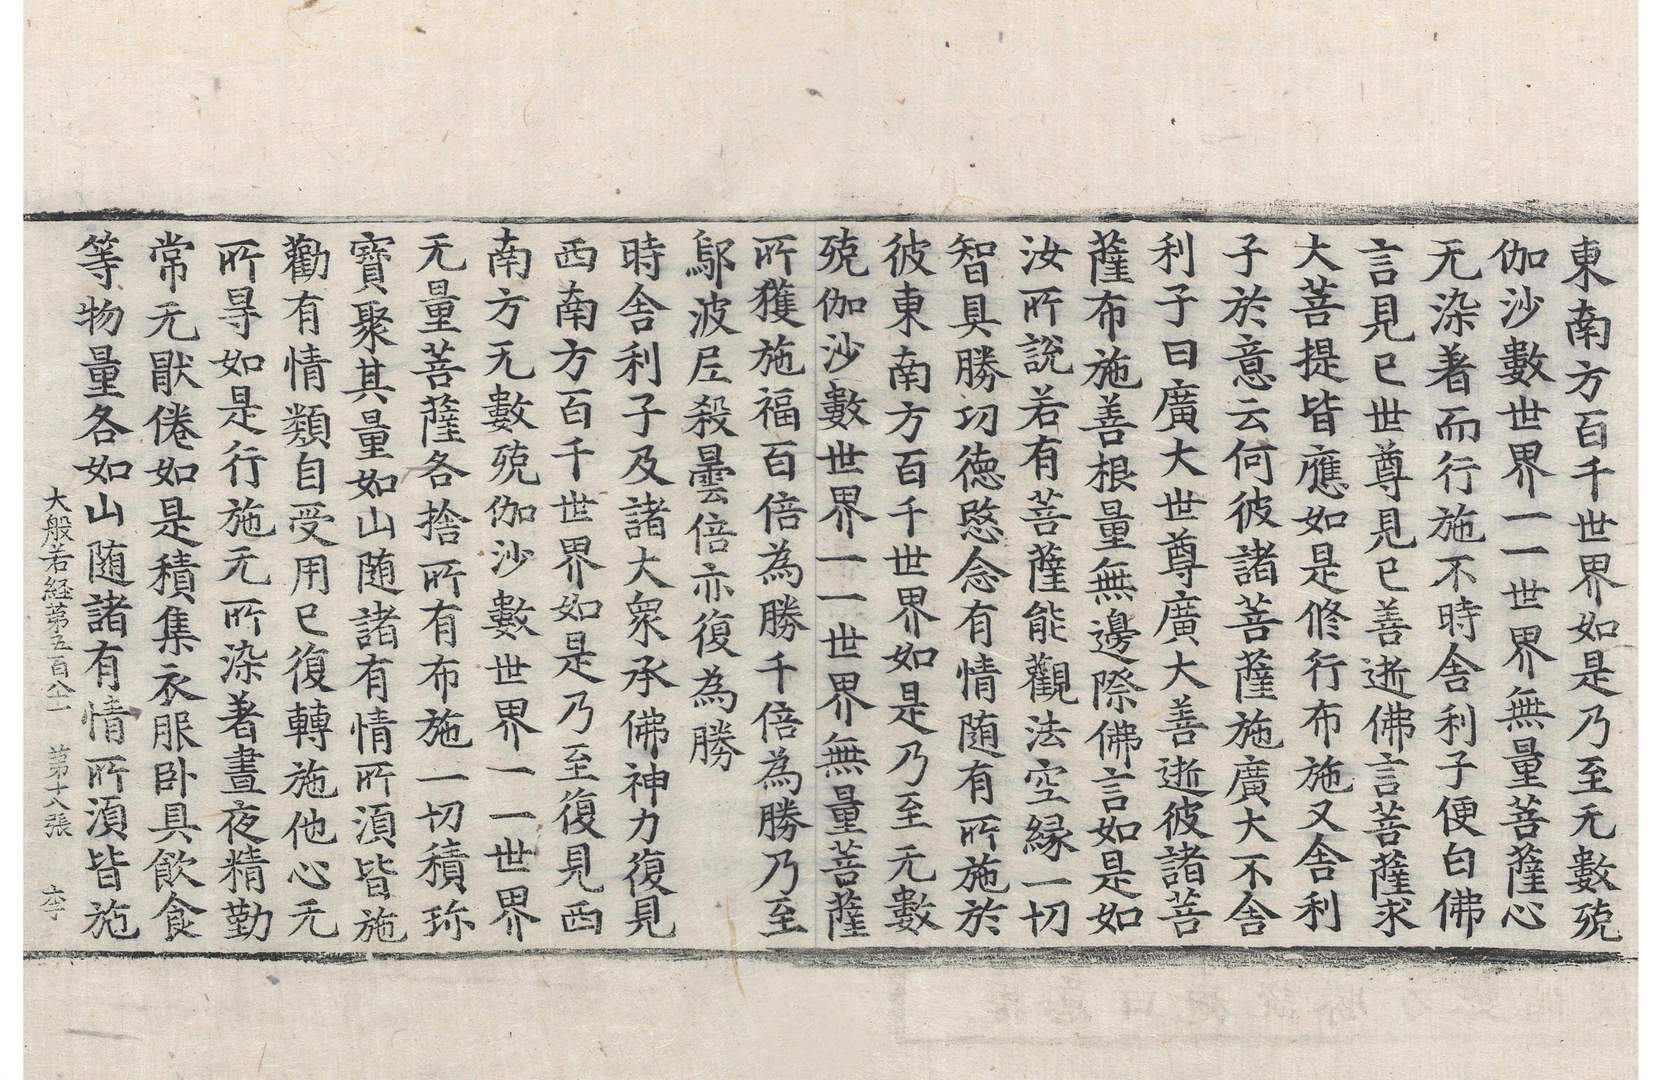 東南方百千世界如是乃至无數殑
伽沙數世界一一世界無量菩薩心
无染著而行施不時舍利子便白佛
言見已世尊見已善逝佛言菩薩求
大菩提皆應如是修行布施又舍利
子於意云何彼諸菩薩施廣大不舍
利子曰廣大世尊廣大善逝彼諸菩
薩布施善根量無邊際佛言如是如
汝所說若有菩薩能觀法空緣一切
智具勝功德愍念有情随有所施於
彼東南方百千世界如是乃至无數
殑伽沙數世界一一世界無量菩薩
所獲施福百倍為勝千倍為勝乃至
鄔波尼殺曇倍亦復為勝
時舍利子及諸大衆承佛神力復見
西南方百千世界如是乃至復見西
南方无數殑伽沙數世界一一世界
无量菩薩各捨所有布施一切積珎
寶聚其量如山随諸有情所湏皆施
勸有情類自受用已復轉施他心无
所㝵如是行施无所染著晝夜精勤
常无猒倦如是積集衣服卧具飲食
等物量各如山随諸有情所湏皆施
大般若経第五百八十一 第十八張 李